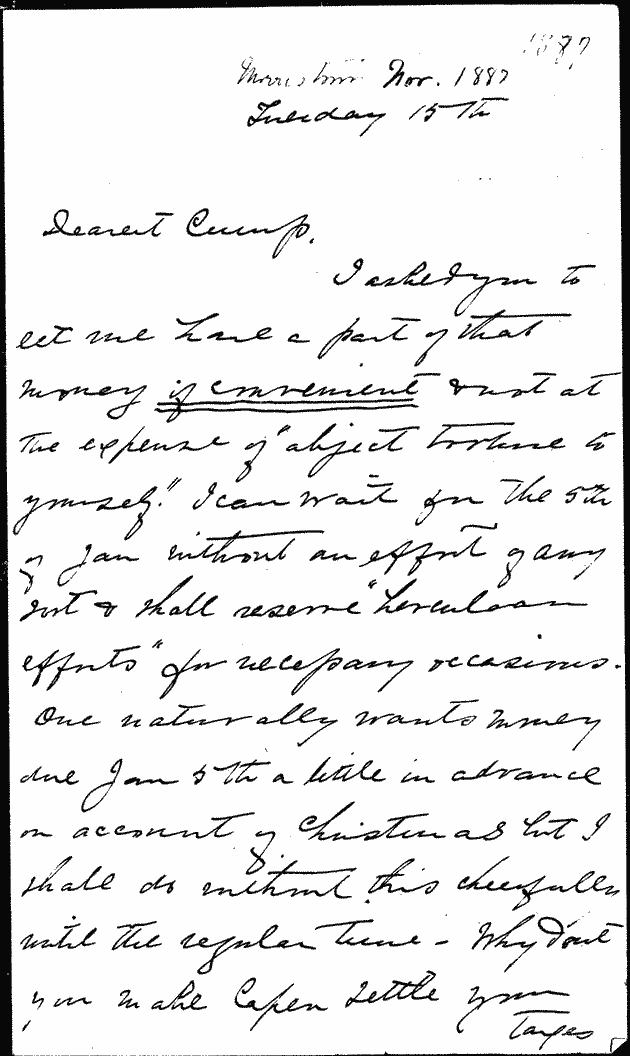 1887
Morristown Nov. 1887
Tuesday 15th
Dearest Cump.
I asked you to
let me have a part of that
money if convenient & not at
the expense of "abject torture to
yourself." I can wait for the 5th
of Jan without an effort of any
sort & shall reserve "herculean
efforts" for necessary occasions.
One naturally wants money
due Jan 5th a little in advance
on account of Christmas but I
shall do without this cheerfully
until the regular time - Why don't
you make Capen settle your
Taxes